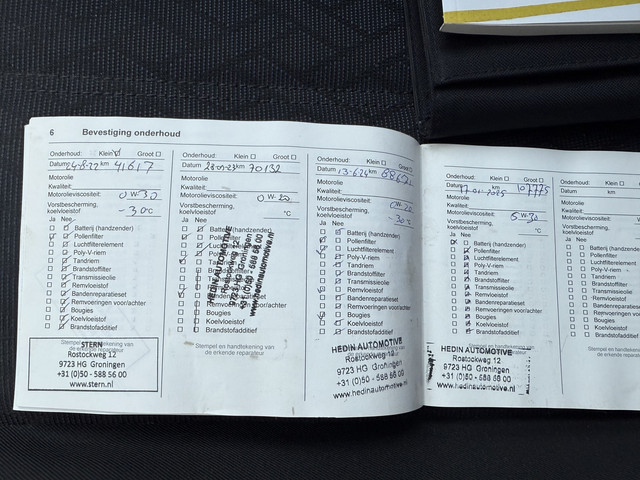 6 Bevestiging onderhoud
Onderhoud: Klein Groot
Datum 24-8-22 km 41617
Motorolie
Kwaliteit:
Motorolieviscositeit: 0W-30
Vorstbescherming,
koelvloeistof -30°C
Ja Nee
Batterij (handzender)
Pollenfilter
Luchtfilterelement
Poly-V-riem
Tandriem
Brandstoffilter
Transmissieolie
Remvloeistof
Bandenreparatieset
Remvoeringen voor/achter
Bougies
Koelvloeistof
Brandstofadditief
Stempel en handtekening van
de erkende reparateur
STERN
Rostockweg 12
9723 HG Groningen
+31 (0)50 - 588 56 00
www.stern.nl
Onderhoud: Klein Groot
Datum km 70132
Motorolie
Kwaliteit:
Motorolieviscositeit: 0W-20
Vorstbescherming,
koelvloeistof °C
Ja Nee
Batterij (handzender)
Pollenfilter
Tandriem
Brandstoffilter
Bandenreparatieset
Remvoeringen voor/achter
Bougies
Koelvloeistof
Brandstofadditief
Stempel en handtekening van
de erkende reparateur
HEDIN AUTOMOTIVE
Rostockweg 12
9723 HG Groningen
+31 (0)50 - 588 56 00
www.hedinautomotive.nl
Onderhoud: Klein Groot
Datum 13-6-24 km
Motorolie
Kwaliteit:
Motorolieviscositeit:
Vorstbescherming,
koelvloeistof -30°C
Ja Nee
Batterij (handzender)
Pollenfilter
Luchtfilterelement
Poly-V-riem
Tandriem
Brandstoffilter
Transmissieolie
Remvloeistof
Bandenreparatieset
Remvoeringen voor/achter
Bougies
Koelvloeistof
Brandstofadditief
HEDIN AUTOMOTIVE
Rostockweg 12
9723 HG Groningen
+31 (0)50 - 588 56 00
www.hedinautomotive.nl
Onderhoud: Klein Groot
Datum 17-01-2025 km 107775
Motorolie
Kwaliteit:
Motorolieviscositeit: 5W-30
Vorstbescherming,
koelvloeistof °C
Ja Nee
Batterij (handzender)
Pollenfilter
Luchtfilterelement
Poly-V-riem
Tandriem
Brandstoffilter
Transmissieolie
Remvloeistof
Bandenreparatieset
Remvoeringen voor/achter
Bougies
Koelvloeistof
Brandstofadditief
Stempel en handtekening van
de erkende reparateur
HEDIN AUTOMOTIVE
Rostockweg 12
9723 HG Groningen
+31 (0)50 - 588 56 00
www.hedinautomotive.nl
Onderhoud: Klein
Datum: km
Motorolie
Kwaliteit:
Motorolieviscositeit:
Vorstbescherming,
koelvloeistof
Ja Nee
Batterij (handzender)
Pollenfilter
Luchtfilterelement
Poly-V-riem
Tandriem
Brandstoffilter
Transmissieolie
Remvloeistof
Bandenreparatieset
Bougies
Koelvloeistof
Brandstofadditief